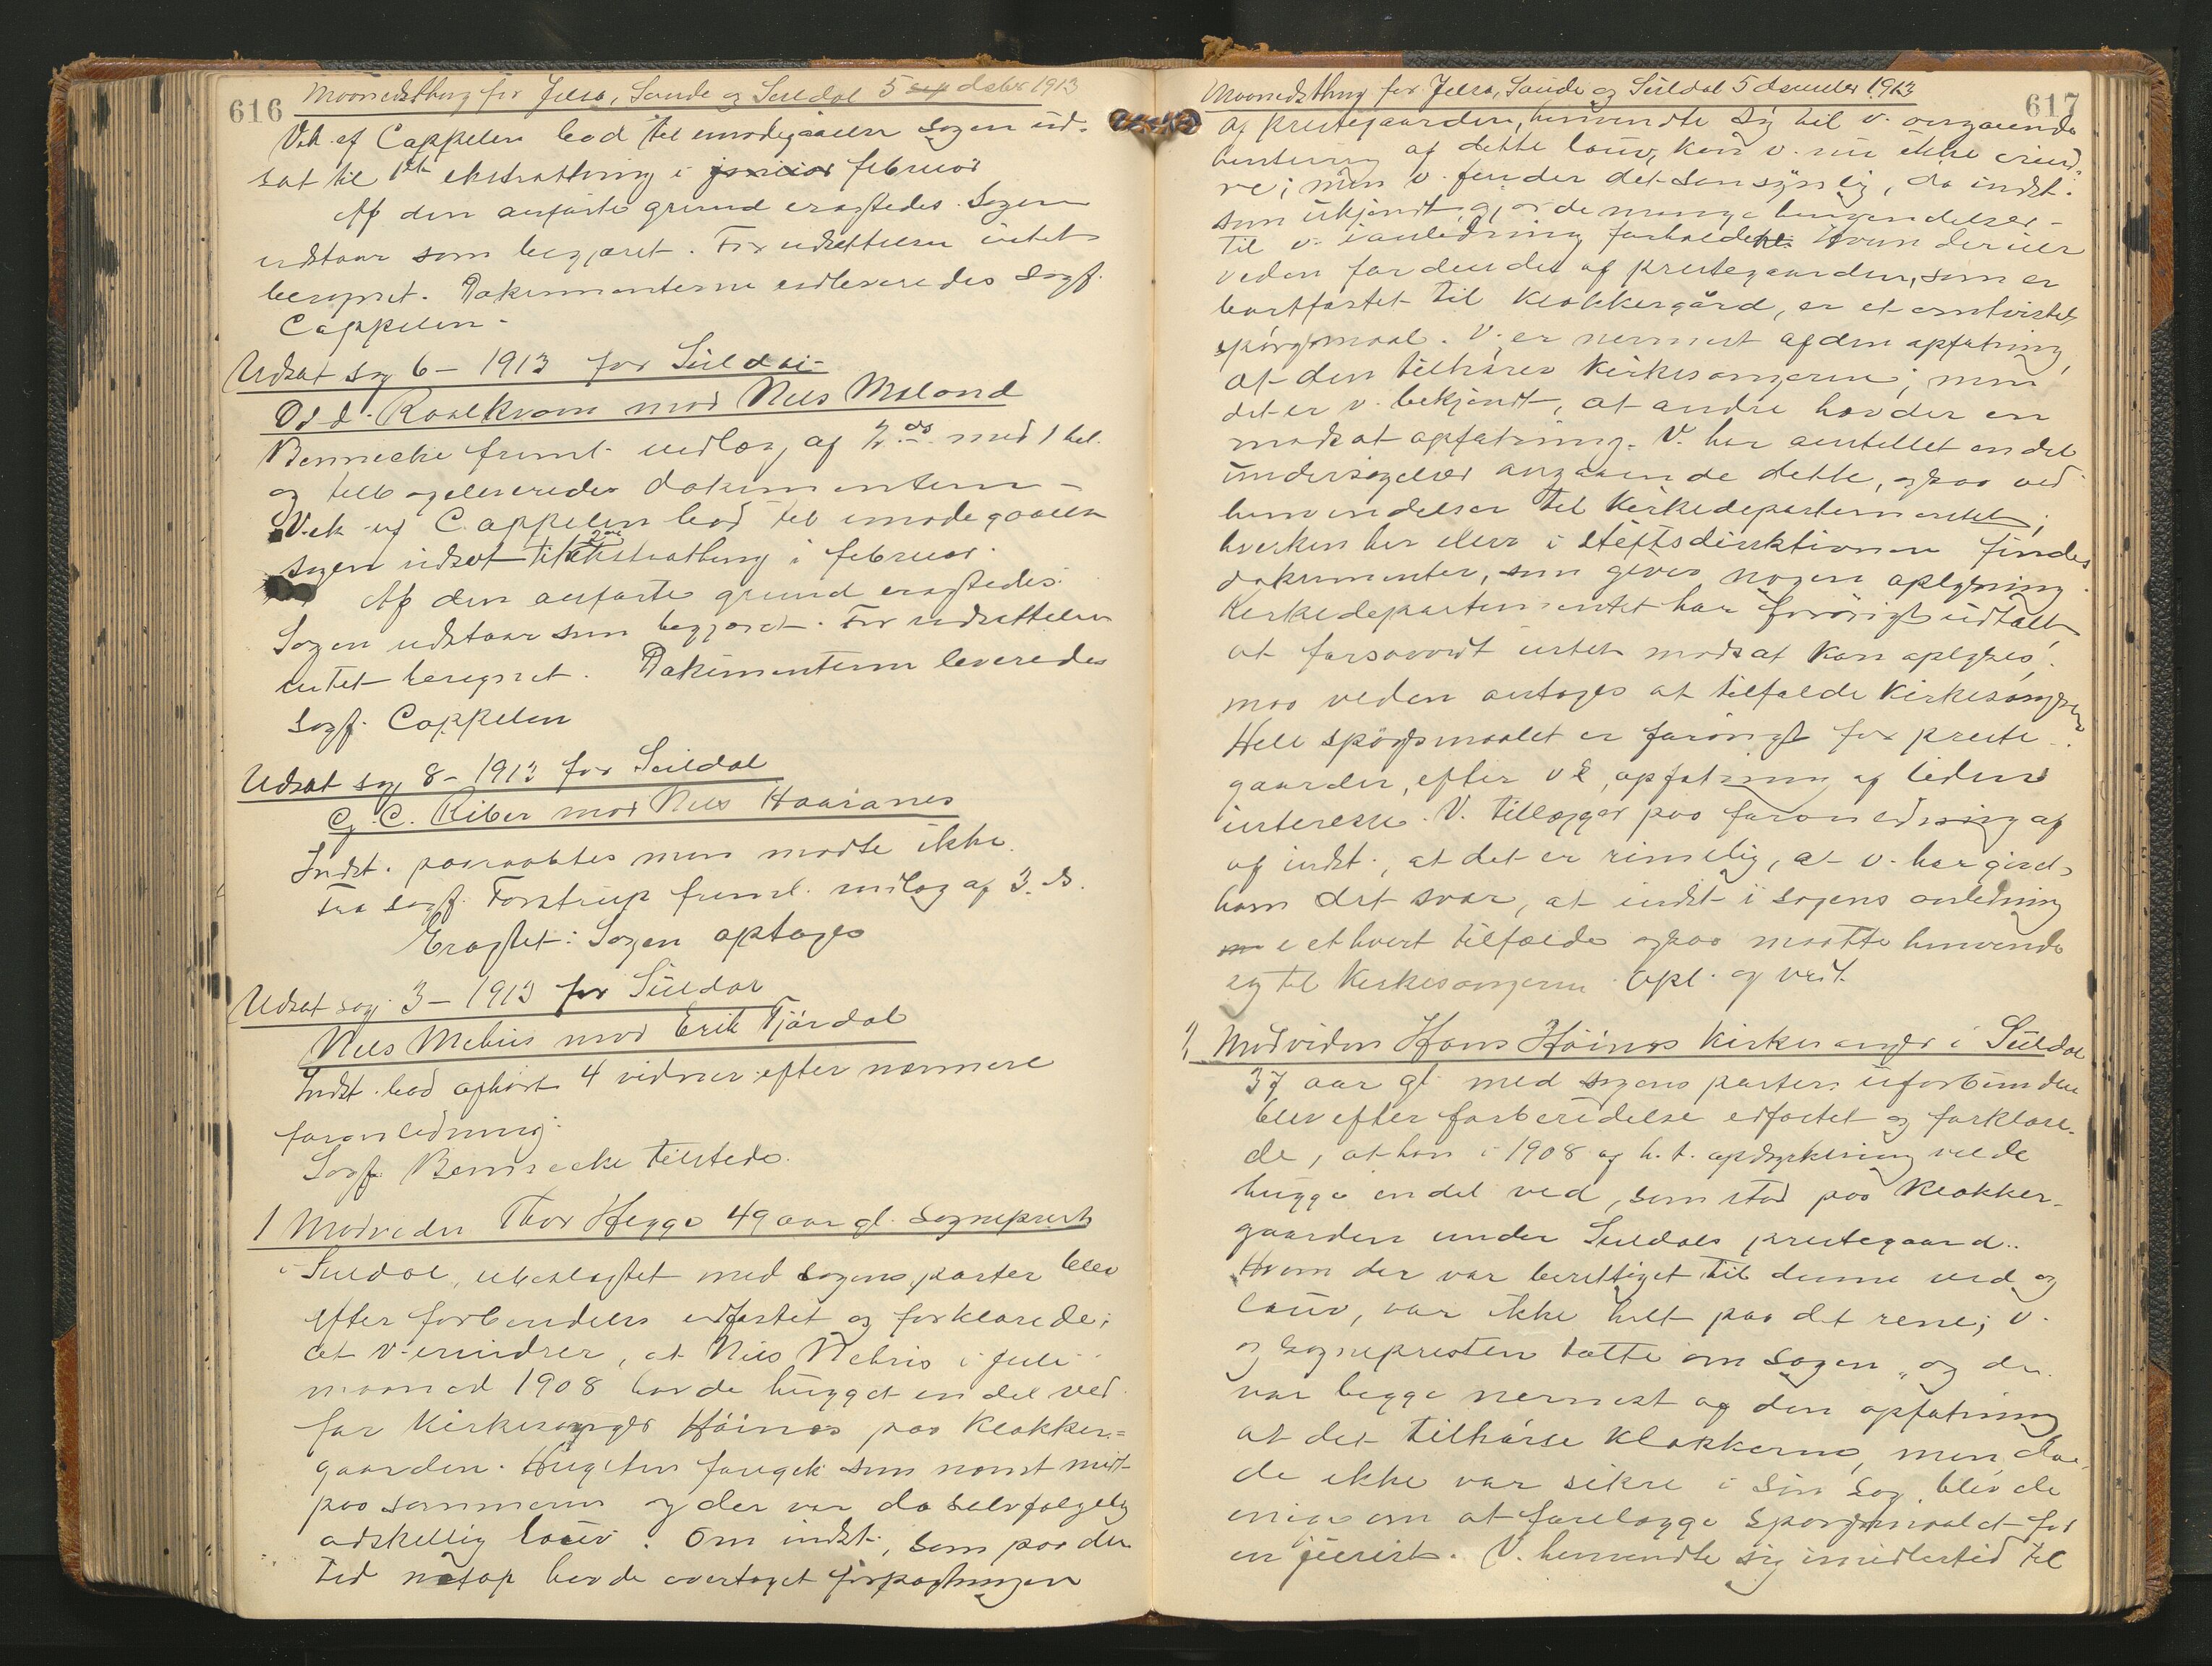 616
Maanedsthing for Jelsa, Sande og Suldal 5 sep dcbr 1913
V.ek. af Cappelen bad til imødegaaelse sagen ud-
sat til 1ste ekstrathing i januar februar
Af den anførte grund eragtedes Sagen
udstaar som begjæret. For udsættelsen intet
beregnet. Dokumenterne udleveredes sagf.
Cappelen -
Udsat sag 6 - 1913 for Suldal
Odd. Roalkvam mod Nils Moland
Bennecke freml. indlæg af 4. ds. med 1 bil.
og tilbageleverede dokumenterne -
V.ek. af Cappelen bad til imødegaaelse
sagen udsat til 2det ekstrathing i februar.
Af den anførte grund eragtedes
Sagen udstaar som begjæret. For udsættelsen
intet beregnet. Dokumenterne leveredes
sagf. Cappelen
Udsat sag 8 - 1913 for Suldal
C. Riber mod Nils Haaranes
Indst. paaraabtes men mødte ikke.
Fra sagf. Torstrup freml. indlæg af 3. ds.
Eragtet: Sagen optages
Udsat sag 3 - 1913 for Suldal
Nils Mehus mod Erik Tjårdal
Indst. bad afhørt 4 vidner efter nærmere
foranledning.
Sagf. Bennecke tilstede.
1 Modvidne Thor Hegge 49 aar gl. sogneprest
i Suldal, ubeslægtet med sagens parter blev
efter forberedelse edfæstet og forklarede;
at v. erindrer, at Nils Mehus i juli
maaned 1908 havde hugget en del ved
for Kirkesanger Høines paa Klokker=
gaarden. Hugsten foregik som nævnt midt
paa sommeren og der var da selvfølgelig
adskillig løuv. Om indst., som paa den
tid netop havde overtaget forpagtningen
617
Maanedsthing for Jelsa, Sande og Suldal 5 december 1913
af prestegaarden, henvendte sig til v. angaaende
hentning af dette løuv, kan v. nu ikke erind-
re; men v. finder det sansynlig, da indst.
som ukjendt gjorde mange henvendelser
til v. i anledning forholdene. Hvem der eier
veden fra den del af prestegaarden, som er
bortfæstet til Klokkergård, er et omtvistet
spørgsmaal. V. er nærmest af den opfatning,
at den tilhører Kirkesangeren; men
det er v. bekjendt, at andre hævder en
modsat opfatning. V. har anstillet en del
undersøgelser angaaende dette, ogsaa ved
henvendelser til Kirkedepartementet;
hverken her eller i stiftsdirektionen findes
dokumenter, som giver nogen oplysning.
Kirkedepartementet har forøvrigt udtalt,
at forsaavidt intet modsat kan oplyses,
maa veden antages at tilfalde Kirkesangeren.
Hele spørgsmaalet er forøvrigt for preste-
gaarden, efter v.s opfatning af liden
interesse. V. tillægger paa foranledning af
af indst., at det er rimelig, at v. har givet
ham det svar, at indst. i sagens anledning
i ethvert tilfælde ogsaa maatte henvende
sig til Kirkesangeren. Opl. og vedt.
2 Modvidne Hans Høines Kirkesanger i Suldal
37 aar gl. med sagens parter uforbunden
blev efter forberedelse edfæstet og forklare-
de, at han i 1908 af h. t. opdyrkning vilde
hugge en del ved, som stod paa Klokker-
gaarden under Suldals prestegaard.
Hvem der var berettiget til denne ved og
løuv, var ikke helt paa det rene; v.
og sognepresten talte om sagen, og de
var begge nærmest af den opfatning
at det tilhørte klokkeren, men da
de ikke var sikre i sin sag, blev de
enige om at forelægge spørgsmaalet for
en jurist. V. henvendte sig imidlertid til